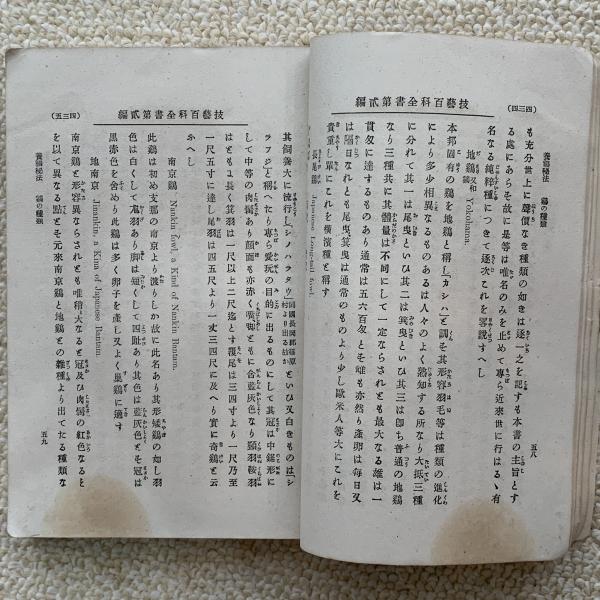 技藝百科全書第貳編
(四三四)
養鷄秘法 鷄の種類
五八
も充分世上に聲價なき種類の如きは逐一之を記するも本書の主旨とす
る處にあらぞ故に是等は唯名のみを止めて專ら近來世に行はるゝ有
名なる純粹種につきて逐次これを畧說すへし
地鷄 漢和 Yokohama.
本邦固有の鷄を地鷄と稱し「カシハ」と訓そ其形容羽毛等は種類の進化
により多少相異なるものあるは人々のよく熟知する所なり大抵三種
に分れて其一は尾曳といひ其二は簑曳といひ其三は卽ち普通の地鷄
なり三種共に其體量は不同にして一定ならされとも最大なる雄は一
貫匁に達するものあり通常は五六百匁とそ雌も亦然り產卵は每日又
は隔日なれとも尾曳、簑曳は通常のものより少し歐米人等大にこれを
貴重し單にこれを橫濱種と稱す
長尾鷄 Japanese Long-tail fowl.
技藝百科全書第貳編
(四三五)
養鷄秘法 鷄の種類
五九
其飼養大に流行し「シノハラタウ」といひ又白きものは「シ
ラフジ」と稱へたり專ら愛玩の目的に出るものにして其冠は中鋸形に
して中等の肉髯あり顏面も亦赤く嘴脚ともに合藍灰色なり頸羽鞍羽
はともよ長く簑羽は一尺以上二尺迄とす覆尾は三四寸より一尺乃至
一尺五寸に達し尾羽は四五尺より一丈三四尺に及へり實に奇鷄と云
ふへし
南京鷄 Nankin fowl, a Kind of Nankin Bantam.
此鷄は初め支那の南京より渡りしか故に此名あり其形矮鷄の如し羽
色は白くして鬼羽あり脚は短くして四趾あり其色は藍灰色とそ冠は
黑赤色を含めり此鷄は多く卵子を產し又よく巢鷄に適す
地南京 Jinankin, a Kina of Japanese Bantam.
南京鷄と形容異ならされとも唯稍大なると冠及ひ肉髯の紅色なると
を以て異なる點とそ元來南京鷄と地鷄との雜種より出てたる種類な